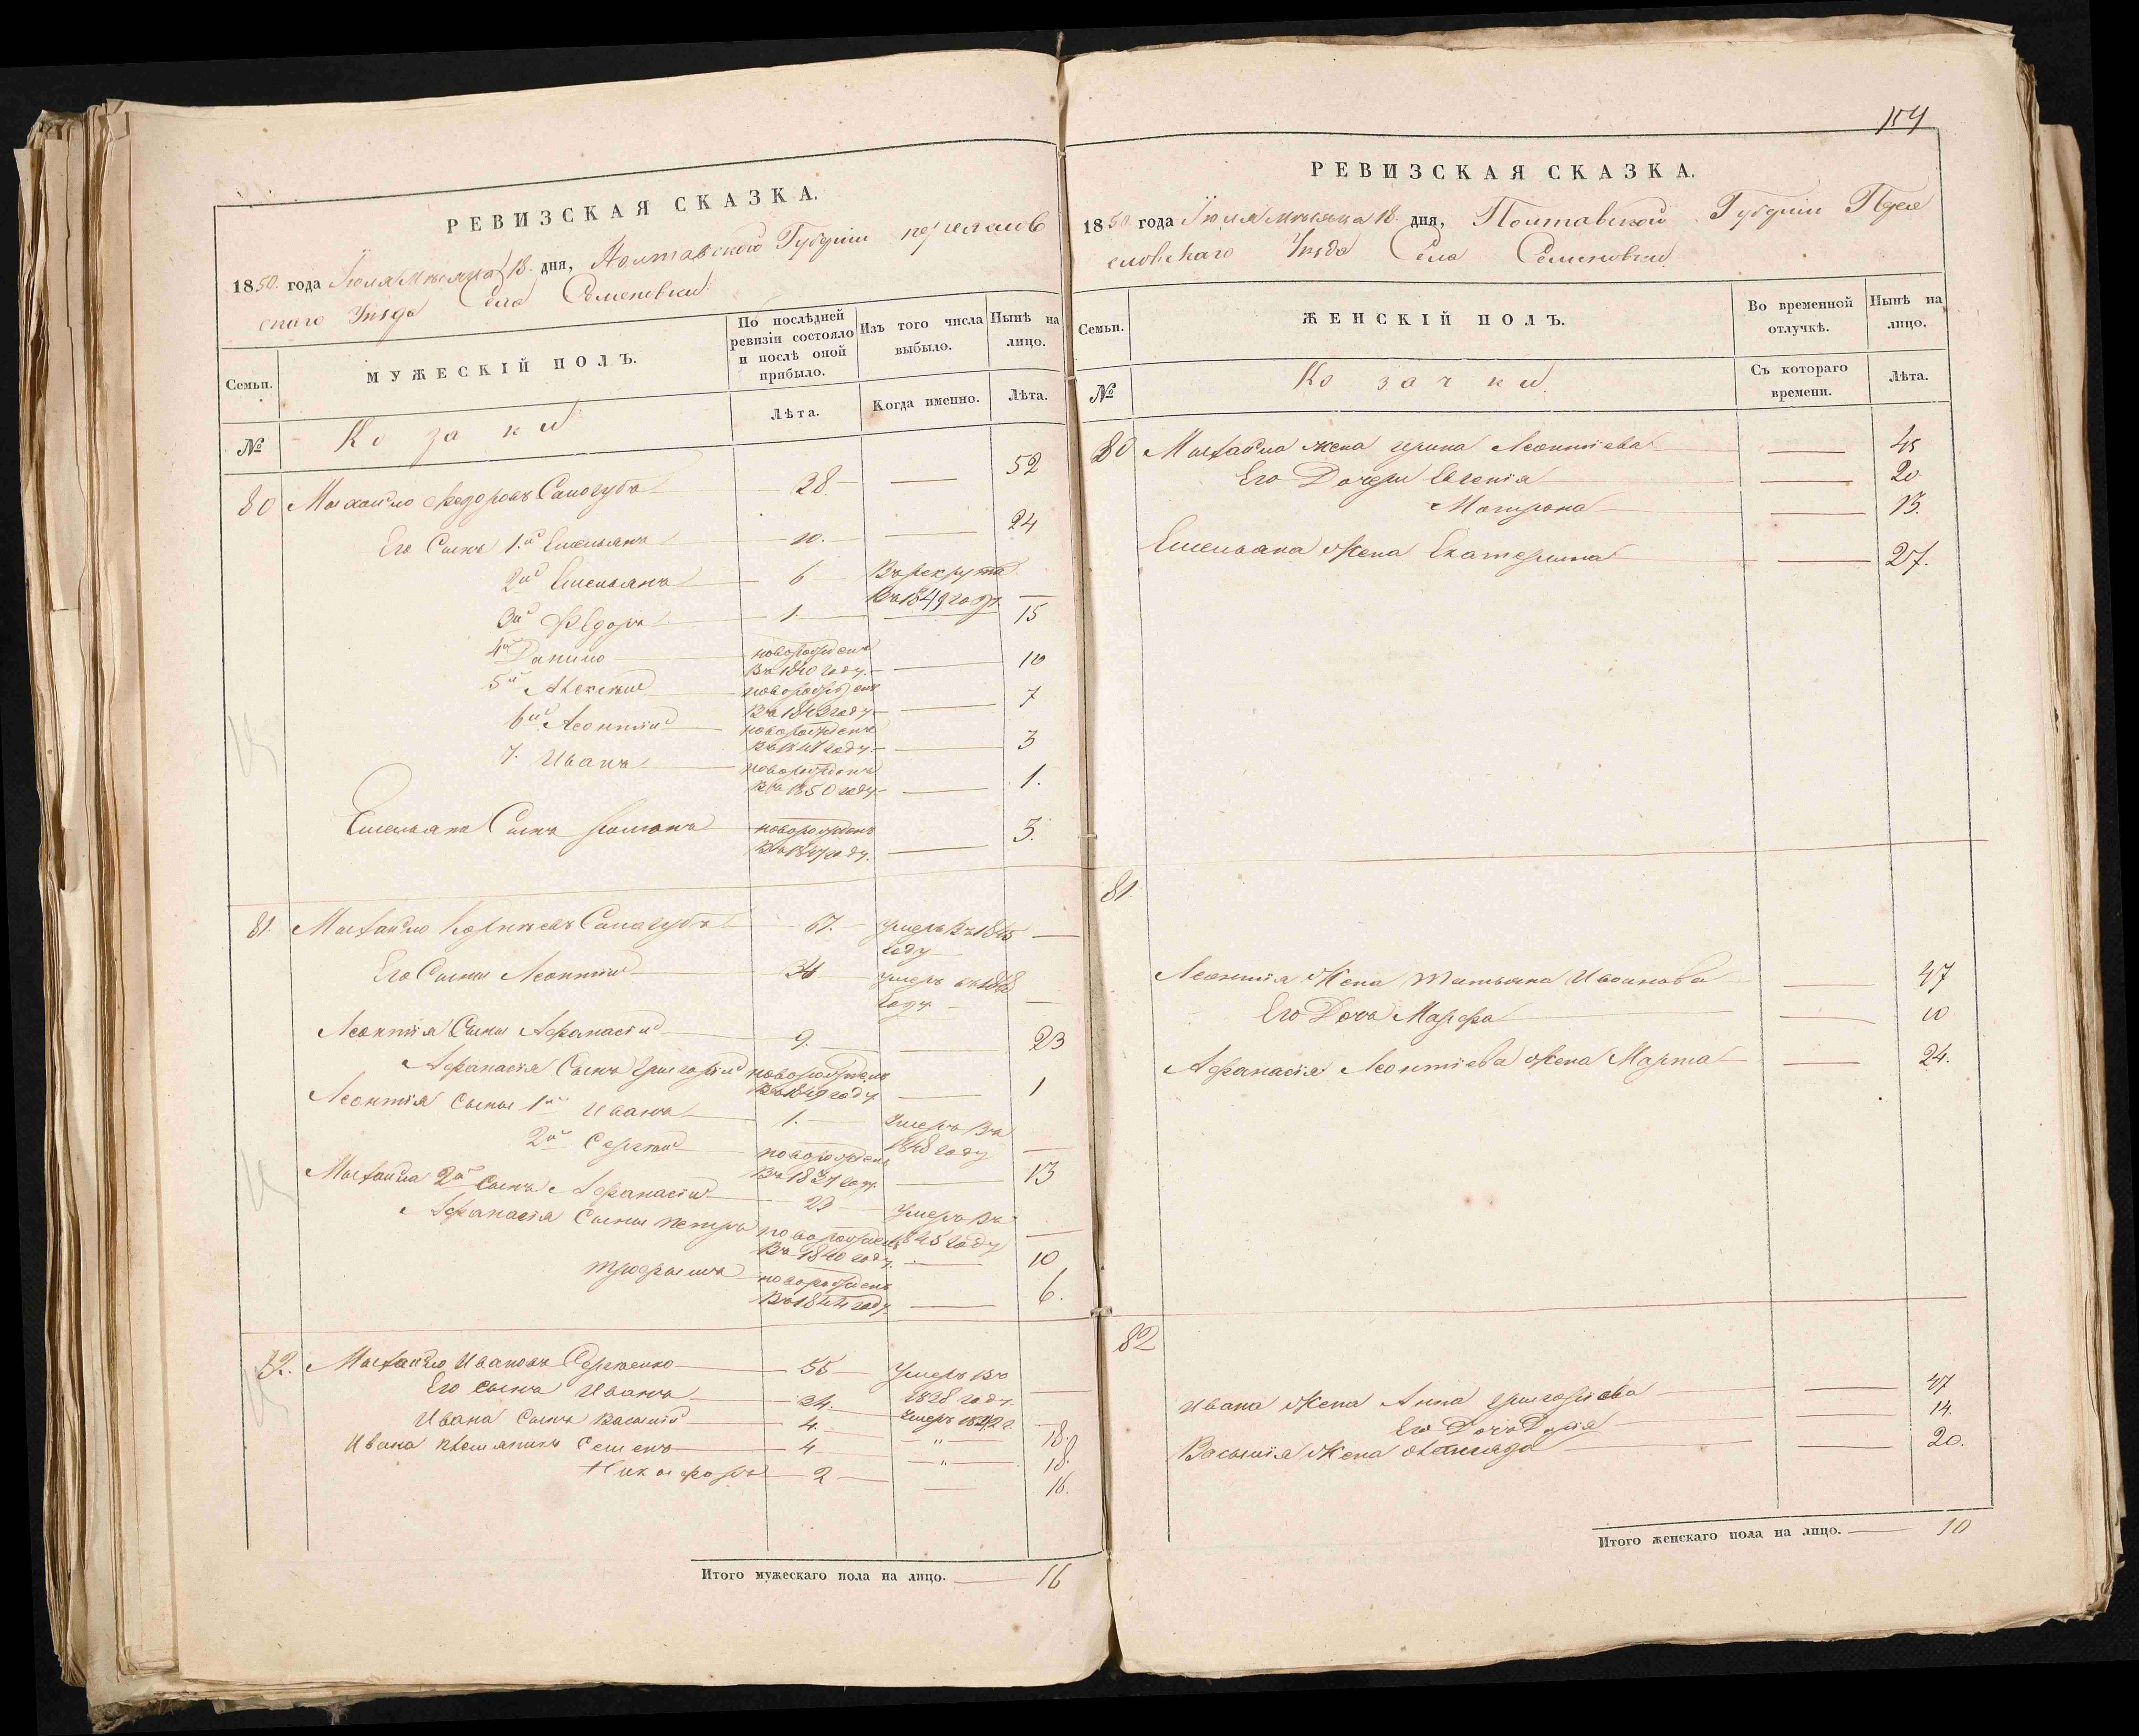 РЕВИЗСКАЯ СКАЗКА.
1850. года Іюля Мѣсяца 18. дня, Полтавской Губерніи Переяслов
скаго Уѣзда Села Семеновки
Семьи.
МУЖЕСКІЙ ПОЛЪ.
По послѣдней
ревизіи состояло
и послѣ оной
прибыло.
Изъ того числа
выбыло.
Нынѣ на
лицо.
№
Козаки
Лѣта.
Когда именно.
Лѣта.
80 Михайло Федоровъ Самогубъ 38. — 52
Его Сынъ 1.й Емельянъ 10. — 24
2й Емельянъ 6 Въ рекрута
Въ 1849 году. —
3й Ѳедоръ 1. — 15
4й Данило новорожденъ
Въ 1840 году. — 10
5й Алексѣй новорожденъ
Въ 1843 году — 7
6й Леонтій новорожденъ
Въ 1847 году. — 3
7. Иванъ новорожденъ
Въ 1850 году — 1.
Емельяна Сынъ Романъ новорожденъ
Въ 1847 году. — 3.
81. Михайло Корнѣевъ Самогубъ 67. умеръ Въ 1845
году —
Его Сынъ Леонтій 34 умеръ въ 1848
году. —
Леонтія Сынъ Афанасій 9. — 23
Афанасія Сынъ Григорій новорожденъ
Въ 1849 году — 1
Леонтія Сыны 1й Иванъ 1. Умеръ Въ
1848 году —
2й Сергѣй новорожденъ
Въ 1837 году. — 13
Михайла 2й Сынъ Афанасій 23 Умеръ Въ
1845 году —
Афанасія Сыны Петръ новорожденъ
Въ 1840 году. — 10
Трофимъ новорожденъ
Въ 1844 году. — 6.
82. Михайло Ивановъ Сергіенко 55 Умеръ Въ
1838 году. —
Его сынъ Иванъ 34. Умеръ 1842 г. —
Ивана Сынъ Василій 4. — " — 18.
Ивана племяникъ Семенъ 4 — " — 18.
Никифоръ 2 — 16.
Итого мужескаго пола на лицо. — 16
154
РЕВИЗСКАЯ СКАЗКА.
1850. года Іюля Мѣсяца 18. дня, Полтавской Губерніи Перея
словскаго Уѣзда Села Семеновки
Семьи.
ЖЕНСКІЙ ПОЛЪ.
Во временной
отлучкѣ.
Нынѣ на
лицо.
№
Козачки
Съ котораго
времени.
Лѣта.
80 Михайла жена Ирина Леонтіева — 45
Его Дочери Евгенія — 20
Матрона — 13.
Емельяна Жена Екатерина — 27.
81.
Леонтія Жена Татьяна Иванова — 47
Его Дочь Марфа — 10
Афанасія Леонтіева Жена Марта — 24.
82
Ивана Жена Анна Григоріева — 47
Его Дочь — 14.
Василія Жена — 20.
Итого женскаго пола на лицо. — 10